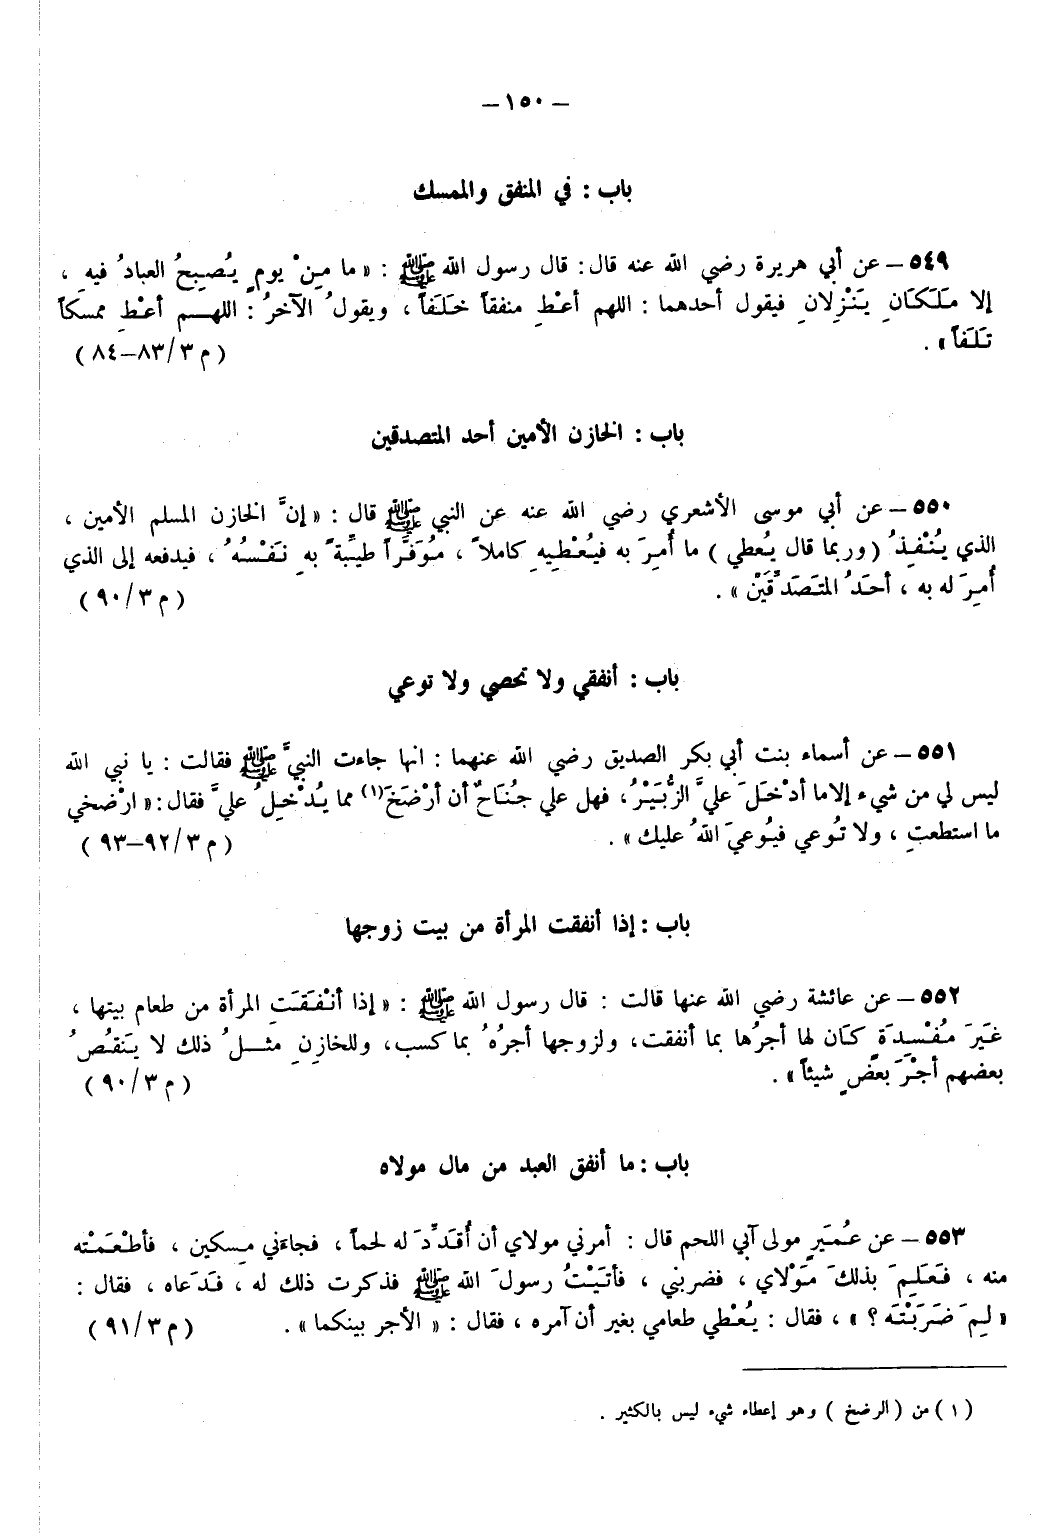 – ١٥٠ –
باب : في المنفق والممسك
٥٤٩ – عن أبي هريرة رضي الله عنه قال : قال رسول الله ﷺ : « ما مِنْ يومٍ يُصبِحُ العبادُ فيهِ ،
إلا مَلَكَانِ يَنْزِلانِ فيقول أحدهما : اللهم أعْطِ منفقاً خَلَفاً ، ويقولُ الآخرُ : اللهـــم أعْطِ ممسكاً
تَلَفاً » .
( م ٣/٨٣–٨٤ )
باب : الخازن الأمين أحد المتصدقين
٥٥٠ – عن أبي موسى الأشعري رضي الله عنه عن النبي ﷺ قال : « إنَّ الخازن المسلم الأمين ،
الذي يُنْفِذُ ( وربما قال يُعطي ) ما أُمِرَ به فيُعْطِيهِ كاملاً ، مُوَفَّراً طيِّبةً بهِ نَفْسُهُ ، فيدفعه إلى الذي
أُمِرَ له به ، أحَدُ المتَصَدِّقَيْن » .
( م ٣/٩٠ )
باب : أنفقي ولا تحصي ولا توعي
٥٥١ – عن أسماء بنت أبي بكر الصديق رضي الله عنهما : انها جاءت النبيَّ ﷺ فقالت : يا نبي الله
ليس لي من شيء إلا ما أدْخَلَ عليَّ الزُّبَيْرُ ، فهل علي جُنَاحٌ أن أرْضَخَ(١) مما يُدْخِلُ عليَّ فقال : « ارْضخي
ما استطعتِ ، ولا تُوعي فيُوعيَ اللهُ عليك » .
( م ٣/٩٢–٩٣ )
باب : إذا أنفقت المرأة من بيت زوجها
٥٥٢ – عن عائشة رضي الله عنها قالت : قال رسول الله ﷺ : « إذا أنْفَقَتِ المرأة من طعام بيتها ،
غيَرَ مُفْسِدَةٍ كَان لها أجرُها بما أنفقت ، ولزوجها أجرُهُ بما كسب ، وللخازِنِ مثــلُ ذلك لا يَنقُصُ
بعضهم أجْرَ بعضٍ شيئاً » .
( م ٣/٩٠ )
باب : ما أنفق العبد من مال مولاه
٥٥٣ – عن عُمَيرٍ مولى آبي اللحم قال : أمرني مولاي أن أُقَدِّدَ له لحماً ، فجاءني مِسكين ، فأطْعَمْته
منه ، فَعَلِمَ بذلكَ مَوْلاي ، فضربني ، فأتَيْتُ رسولَ الله ﷺ فذكرت ذلك له ، فَدَعاه ، فقال :
« لِمَ ضَرَبْتَه ؟ » ، فقال : يُعْطي طعامي بغير أن آمره ، فقال : « الأجر بينكما » .
( م ٣/٩١ )
( ١ ) من ( الرضخ ) وهو إعطاء شيء ليس بالكثير .